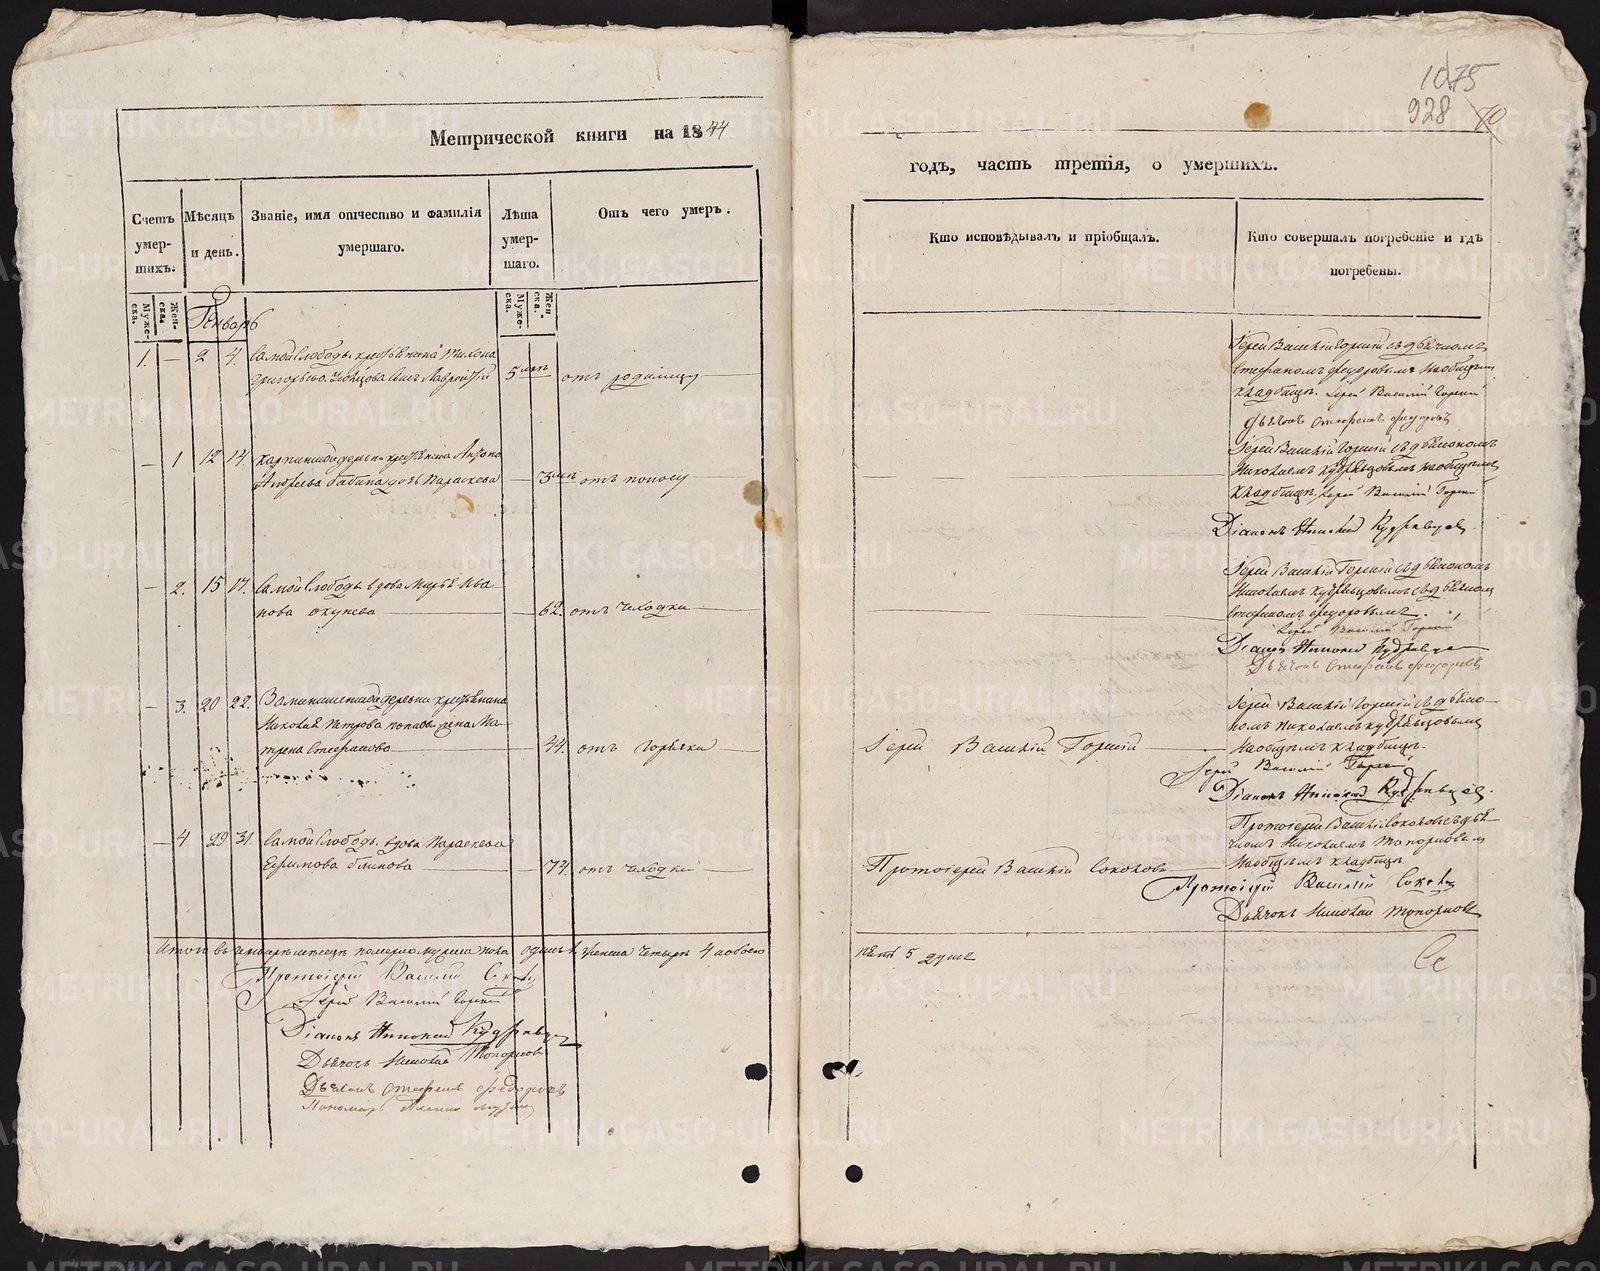 1075
928 70
Метрической книги на 1844
годъ, часть третія, о умершихъ.
Счетъ умер-шихъ.
Мѣсяцъ и день.
Званіе, имя отчество и фамилія умершаго.
Лѣта умер-шаго.
Отъ чего умеръ.
Кто исповѣдывалъ и пріобщалъ.
Кто совершалъ погребеніе и гдѣ погребены.
Муже-ска.
Жен-ска.
Муже-ска.
Жен-ска.
Генварь
1. — 2 4. Самой Слободы крестьянина Тихона
Григорьева сынъ Лаврентій 5 отъ родимцу
Іерей Василій Горный съ дьячкомъ
Стефаномъ Федоровымъ на общемъ
кладбищѣ. Іерей Василій Горный
Дьячокъ Стефанъ Федоровъ
— 1 12 14.
Андреева Бабина дочь Параскева — 3 отъ поносу
Іерей Василій Горный съ діакономъ
Николаемъ Кудрявцовымъ на общемъ
кладбищѣ. Іерей Василій Горный
Діаконъ Николай Кудрявцевъ
— 2. 15 17. Самой Слободы вдова Марья Ива-
нова Окунева — 62. отъ чихотки
Іерей Василій Горный съ діакономъ
Николаемъ Кудрявцовымъ съ дьячкомъ
Стефаномъ Федоровымъ.
Іерей Василій Горный
Діаконъ Николай Кудрявцевъ
Дьячокъ Стефанъ Федоровъ
— 3. 20 22. деревни крестьянина
Николая Петрова Попова жена Ма-
трена Стефанова — 44. отъ горячки
Іерей Василій Горный
Іерей Василій Горный съ діако-
номъ Николаемъ Кудрявцовымъ
на общемъ кладбищѣ.
Іерей Василій Горный
Діаконъ Николай Кудрявцевъ.
— 4 29 31. Самой Слободы вдова Параскева
Ефимова Блинова — 74. отъ чихотки
Протоіерей Василій Соколовъ
Протоіерей Василій Соколовъ съ дья-
чкомъ Николаемъ Топорковымъ
на общемъ кладбищѣ
Протоіерей Василій Соколовъ
Дьячокъ Николай Топорковъ
Итого въ генварѣ мѣсяцѣ померло мужеска пола одинъ 1, женска четыре 4 а обоего
пять 5 душъ
Протоіерей Василій Соколовъ
Іерей Василій Горный
Діаконъ Николай Кудрявцевъ
Дьячокъ Николай Топорковъ
Дьячокъ Стефанъ Федоровъ
Пономарь
METRIKI.GASO-URAL.RU